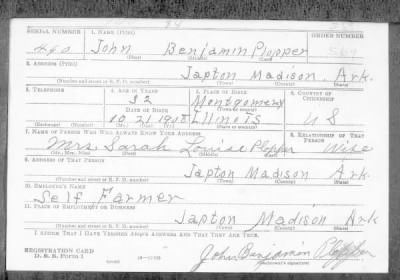 SERIAL NUMBER 1. NAME (Print) ORDER NUMBER
490 John Benjamin Plopper
2. ADDRESS (Print)
Japton Madison Ark.
(Number and street or R. F. D. number) (Town) (County) (State)
3. TELEPHONE 4. AGE IN YEARS 5. PLACE OF BIRTH 6. COUNTRY OF CITIZENSHIP
32 Montgomery
DATE OF BIRTH
10 21 1908 Illinois U S
(Mo.) (Day) (Yr.) (State or country)
7. NAME OF PERSON WHO WILL ALWAYS KNOW YOUR ADDRESS 8. RELATIONSHIP OF THAT PERSON
Mrs. Sarah Louise Plopper Wife
(Mr., Mrs., Miss) (First) (Middle) (Last)
9. ADDRESS OF THAT PERSON
Japton Madison Ark
(Number and street or R. F. D. number) (Town) (County) (State)
10. EMPLOYER'S NAME
Self Farmer
11. PLACE OF EMPLOYMENT OR BUSINESS
Japton Madison Ark
(Number and street or R. F. D. number) (Town) (County) (State)
I AFFIRM THAT I HAVE VERIFIED ABOVE ANSWERS AND THAT THEY ARE TRUE.
REGISTRATION CARD
D. S. S. Form 1 John Benjamin Plopper
(Registrant's signature)